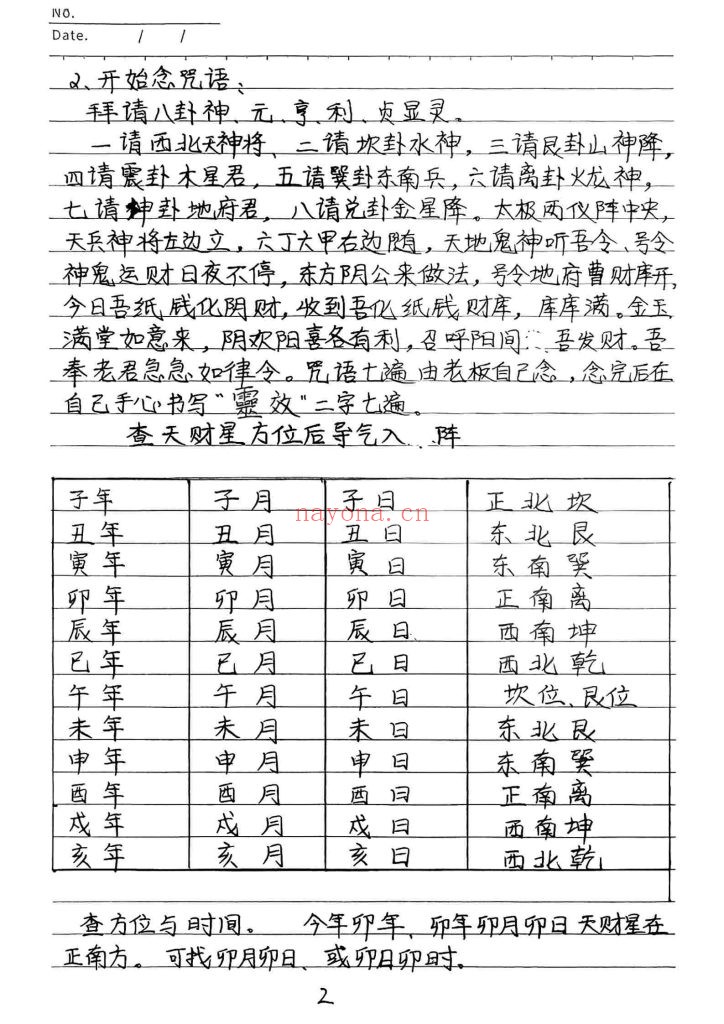 No.
Date. / /
2、开始念咒语：
拜请八卦神、元、亨、利、贞显灵。
一请西北天神将、二请坎卦水神，三请艮卦山神降，
四请震卦木星君，五请巽卦东南兵，六请离卦火龙神，
七请坤卦地府君，八请兑卦金星降。太极两仪阵中央，
天兵神将左边立，六丁六甲右边随，天地鬼神听吾令、号令
神鬼运财日夜不停，东方阴公来做法，号令地府曹财库开，
今日吾纸钱化阴财，收到吾化纸钱财库，库库满。金玉
满堂如意来，阴欢阳喜各有利，召呼阳间 吾发财。吾
奉老君急急如律令。咒语七遍由老板自己念，念完后在
自己手心书写“靈效”二字七遍。
查天财星方位后导气入 阵
子年 子月 子日 正北坎
nayona.cn
丑年 丑月 丑日 东北艮
寅年 寅月 寅日 东南巽
卯年 卯月 卯日 正南离
辰年 辰月 辰日 西南坤
巳年 巳月 巳日 西北乾
午年 午月 午日 坎位、艮位
未年 未月 未日 东北艮
申年 申月 申日 东南巽
酉年 酉月 酉日 正南离
戌年 戌月 戌日 西南坤
亥年 亥月 亥日 西北乾
查方位与时间。 今年卯年、卯年卯月卯日天财星在
正南方。可找卯月卯日、或卯日卯时。
2